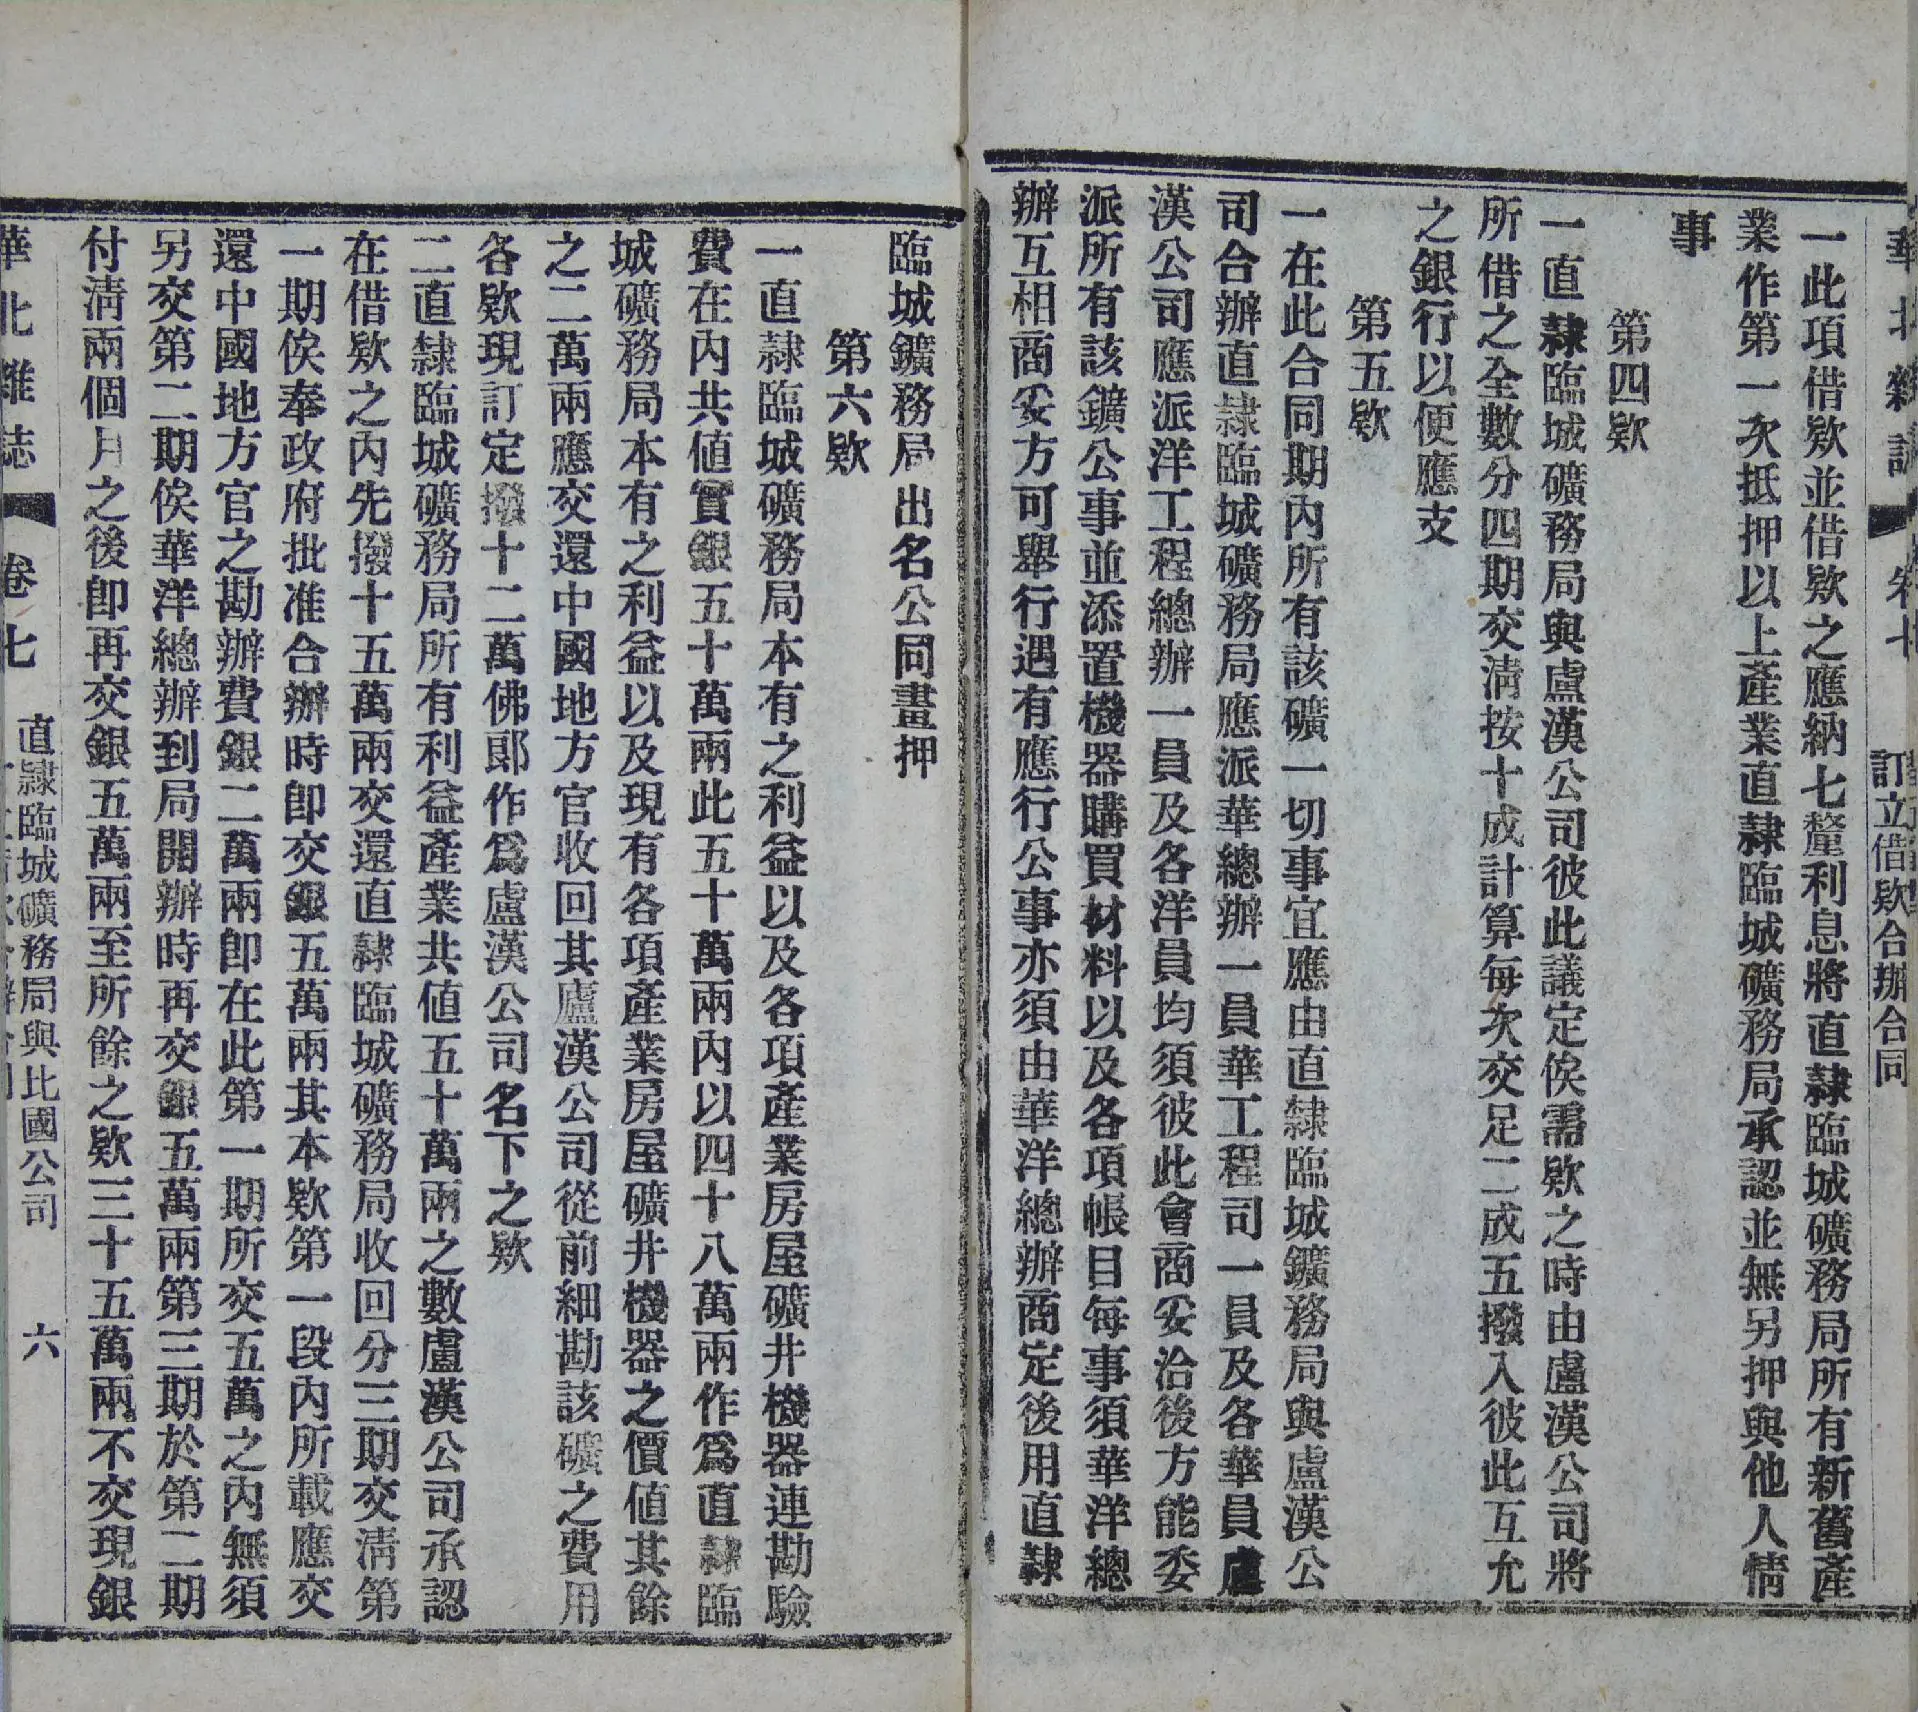 訂立借欵合辦合同
一此項借欵並借欵之應納七釐利息將直隷臨城礦務局所有新舊產
業作第一次抵押以上產業直隷臨城礦務局承認並無另押與他人情
事
第四欵
一直隷臨城礦務局與盧漢公司彼此議定俟需欵之時由盧漢公司將
所借之全數分四期交淸按十成計算每次交足二成五撥入彼此互允
之銀行以便應支
第五欵
一在此合同期內所有該礦一切事宜應由直隷臨城鑛務局與盧漢公
司合辦直隷臨城礦務局應派華總辦一員華工程司一員及各華員盧
漢公司應派洋工程總辦一員及各洋員均須彼此會商妥洽後方能委
派所有該鑛公事並添置機器購買材料以及各項帳目每事須華洋總
辦互相商妥方可舉行遇有應行公事亦須由華洋總辦商定後用直隷
臨城鑛務局出名公同畫押
第六欵
一直隷臨城礦務局本有之利益以及各項產業房屋礦井機器連勘驗
費在內共値實銀五十萬兩此五十萬兩內以四十八萬兩作爲直隷臨
城礦務局本有之利益以及現有各項產業房屋礦井機器之價値其餘
之二萬兩應交還中國地方官收回其廬漢公司從前細勘該礦之費用
各欵現訂定撥十二萬佛郞作爲盧漢公司名下之欵
二直隷臨城礦務局所有利益產業共値五十萬兩之數盧漢公司承認
在借欵之內先撥十五萬兩交還直隷臨城礦務局收回分三期交淸第
一期俟奉政府批准合辦時卽交銀五萬兩其本欵第一段內所載應交
還中國地方官之勘辦費銀二萬兩卽在此第一期所交五萬之內無須
另交第二期俟華洋總辦到局開辦時再交銀五萬兩第三期於第二期
付淸兩個月之後卽再交銀五萬兩至所餘之欵三十五萬兩不交現銀
華北雜誌 卷七 直隷臨城礦務局與比國公司 六